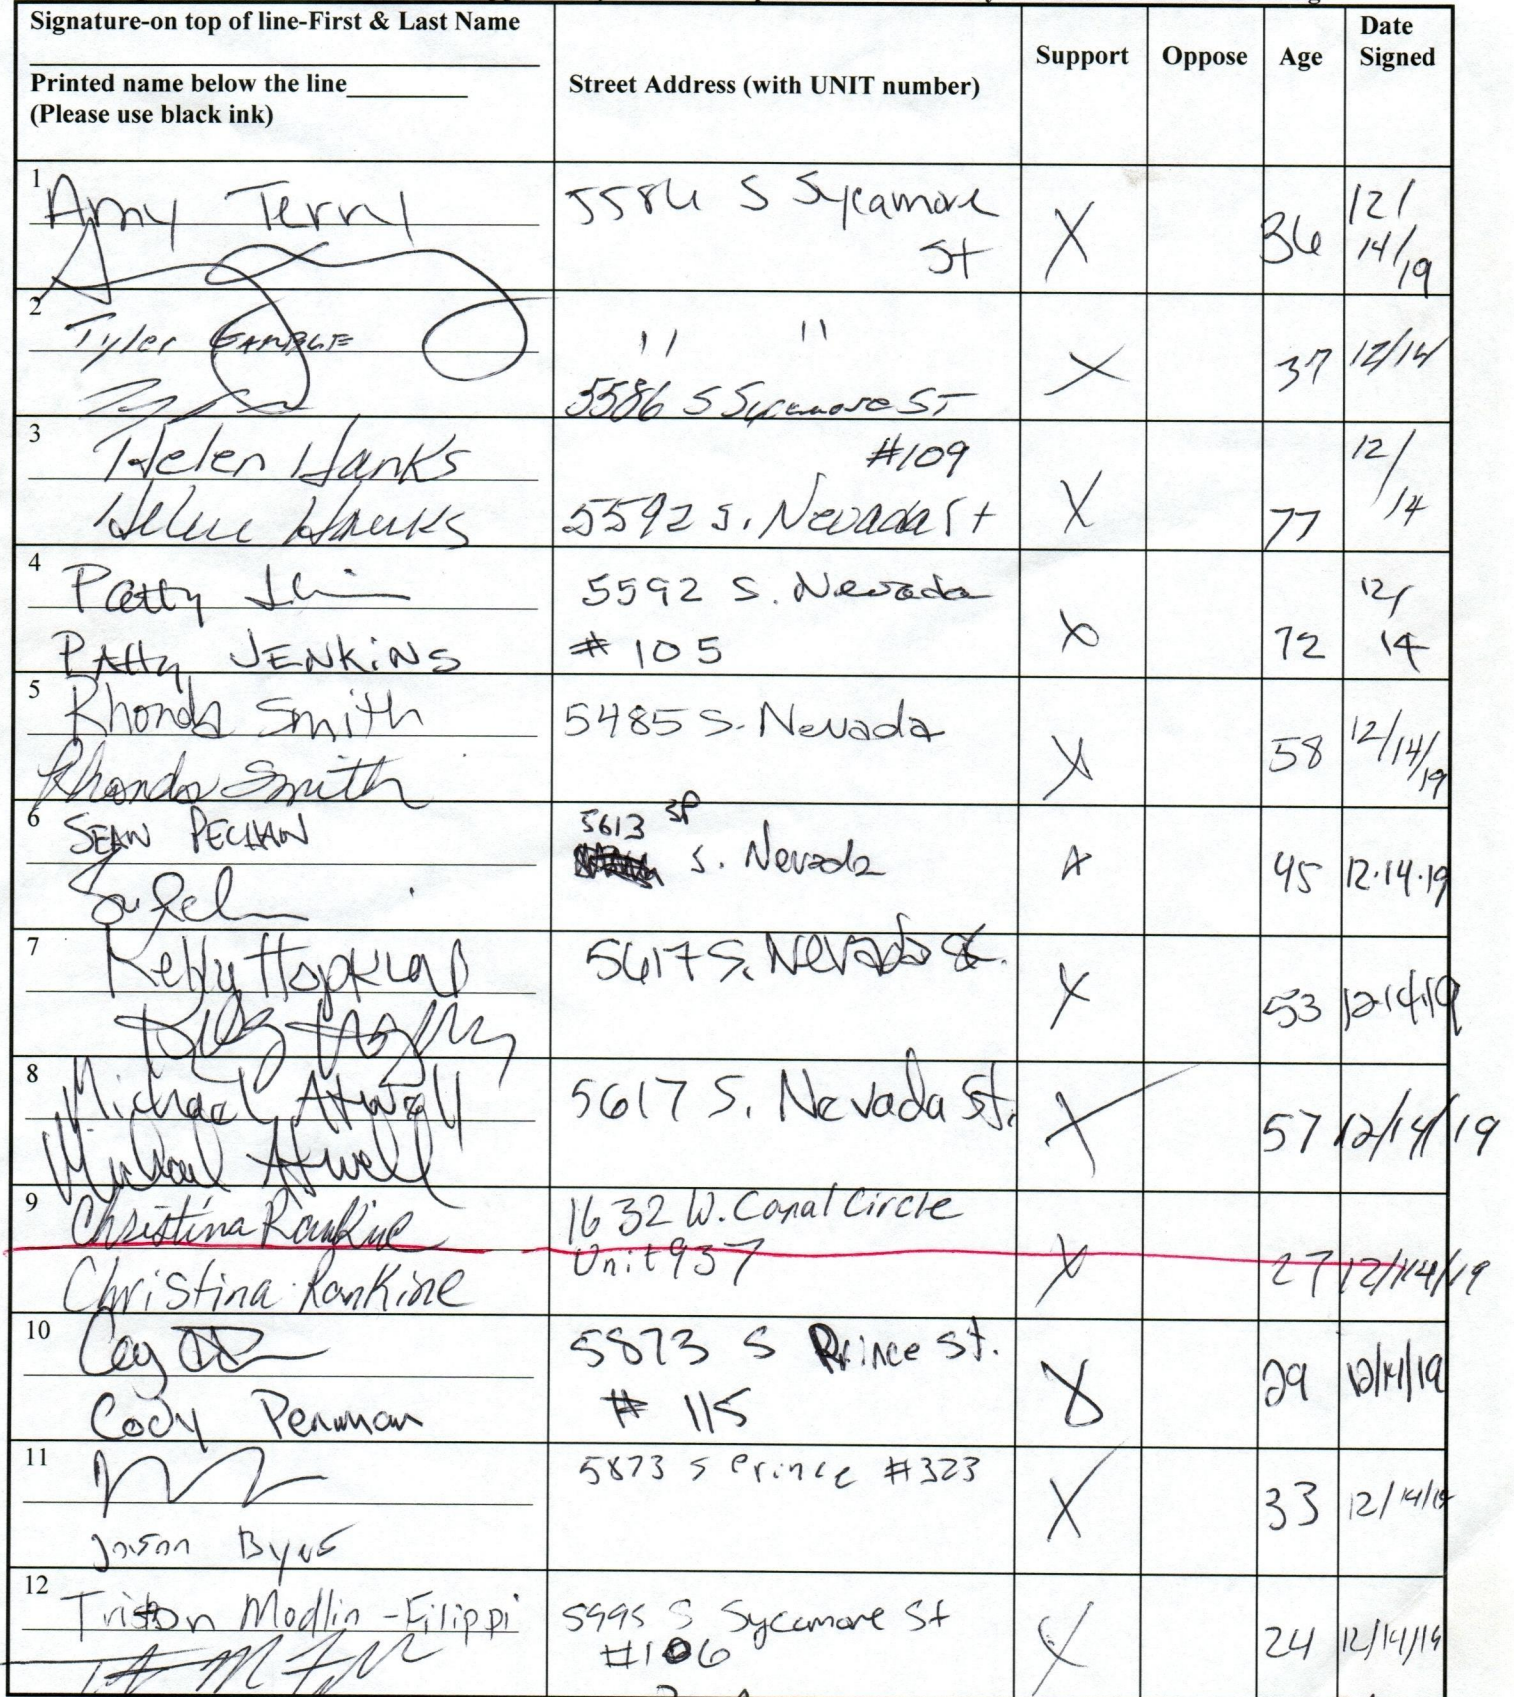 Signature-on top of line-First & Last Name
Printed name below the line
(Please use black ink)
Street Address (with UNIT number)
Support
Oppose
Age
Date
Signed
1
Amy Terry
5586 S Sycamore
St
X
36
12/
14/19
2
Tyler GAMBLE
" "
5586 S Sycamore ST
X
37
12/14
3
Helen Hanks
Helen Hanks
#109
5592 S. Nevada St
X
77
12/
14
4
Patty
PAtty JENKiNS
5592 S. Nevada
# 105
X
72
12/
14
5
Rhonda Smith
Rhonda Smith
5485 S. Nevada
X
58
12/14/19
6
SEAN PECHAN
5613 SP
S. Nevada
X
45
12.14.19
7
Kelly Hopkins
5617 S. Nevada St.
X
53
12.14.19
8
Michael Atwell
Michael Atwell
5617 S. Nevada St.
X
57
12/14/19
9
Christina Rankine
Christina Rankine
1632 W. Canal Circle
Unit 937
X
27
12/14/19
10
Cody Penman
5873 S Prince St.
# 115
X
29
12/14/19
11
Jason
5873 S Prince #323
X
33
12/14/19
12
Triston Modlin-Filippi
5995 S Sycamore St
#106
X
24
12/14/19